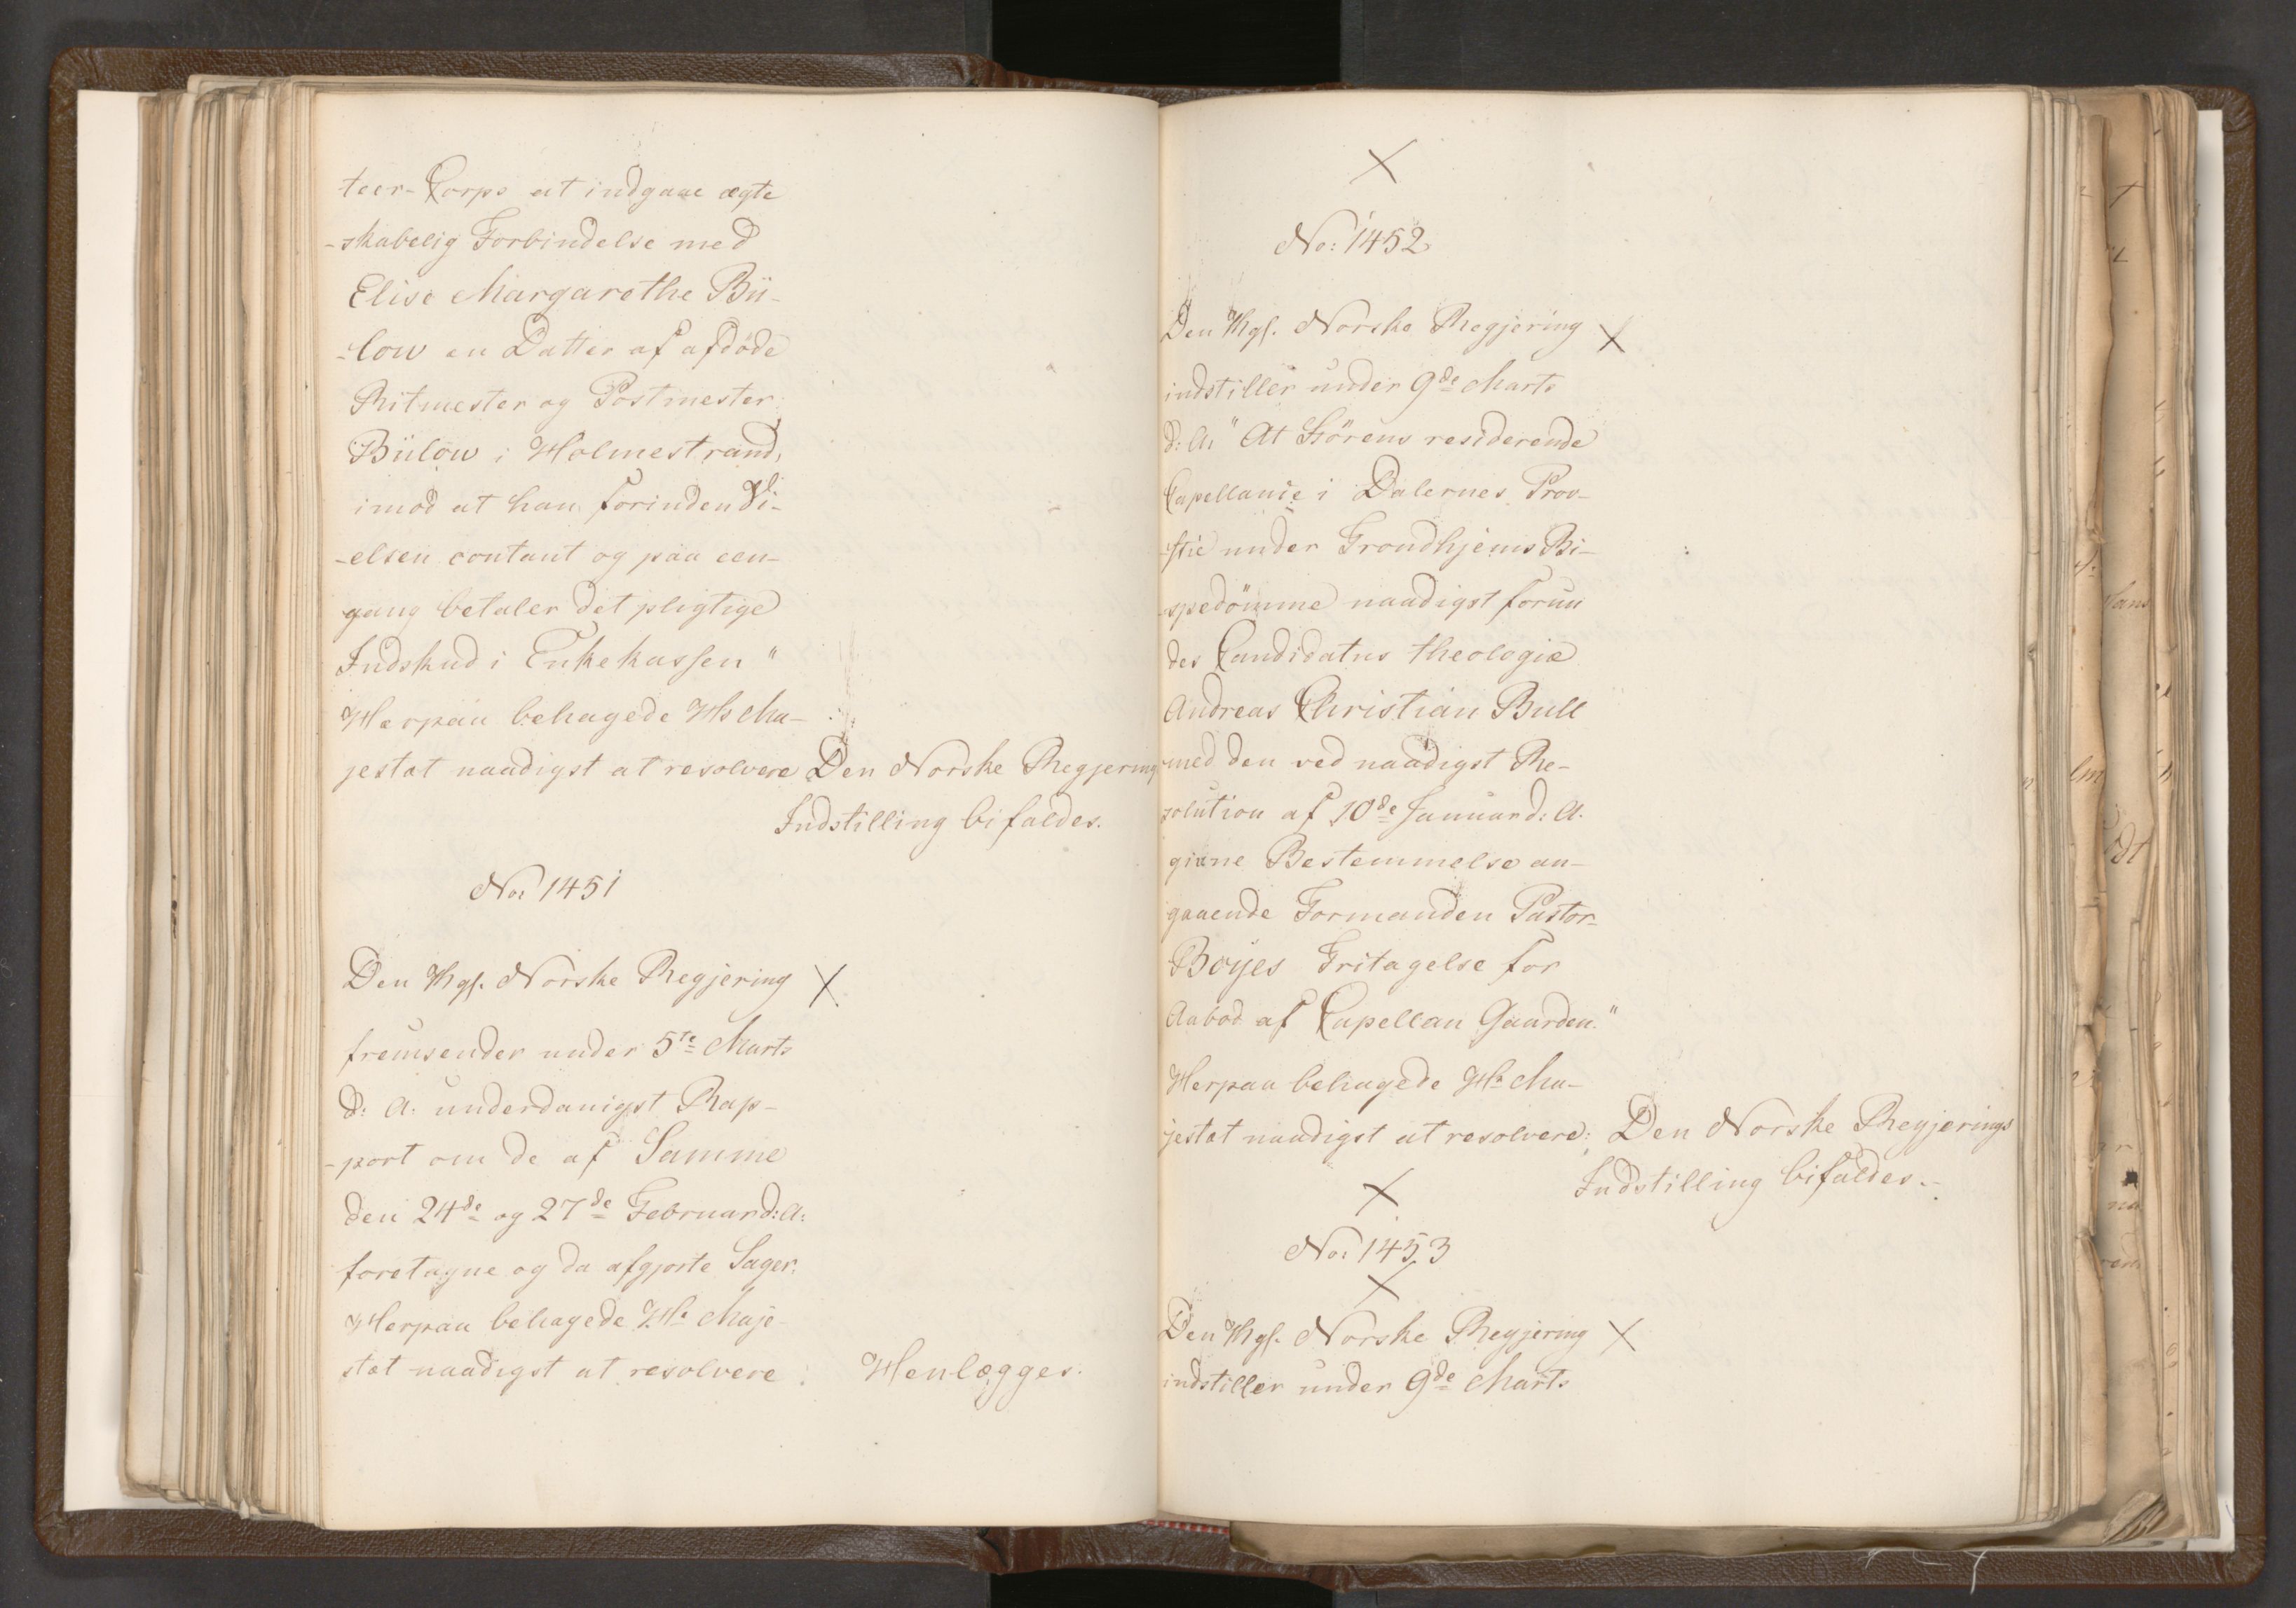 teer-Corps at indgaae ægte
-skabelig Forbindelse med
Elise Margarethe Bü-
-low en Datter af afdöde
Ritmester og Postmester
Bülow i Holmestrand,
imod at han forinden Vi-
-elsen contant og paa een-
gang betaler det pligtige
Indskud i Enkekassen"
Herpaa behagede Hs Ma-
jestæt naadigst at resolvere Den Norske Regjerings
Indstilling bifaldes.
No: 1451
Den Kgl. Norske Regjering X
fremsender under 5te Marts
d: A: underdanigst Rap-
-port om de af Samme
den 24de og 27de Februar d: A:
foretagne og da afgjorte Sager.
Herpaa behagede Hs Maje-
stæt naadigst at resolvere: Henlægges.
X
No: 1452
Den Kgl. Norske Regjering X
indstiller under 9de Marts
d: A: "At Störens residerende
Capellanie i Dalernes Prov-
-stie under Trondhjems Bi-
-spedömme naadigst forun
des Candidatus theologiæ
Andreas Christian Bull
med den ved naadigst Re-
solution af 10de Januar d: A.
givne Bestemmelse an-
gaaende Formanden Pastor
Boyes Fritagelse for
Aabod af Capellan Gaarden."
Herpaa behagede Hs Ma-
jestæt naadigst at resolvere: Den Norske Regjerings
Indstilling bifaldes.-
X
No: 1453
X
Den Kgl. Norske Regjering X
indstiller under 9de Marts